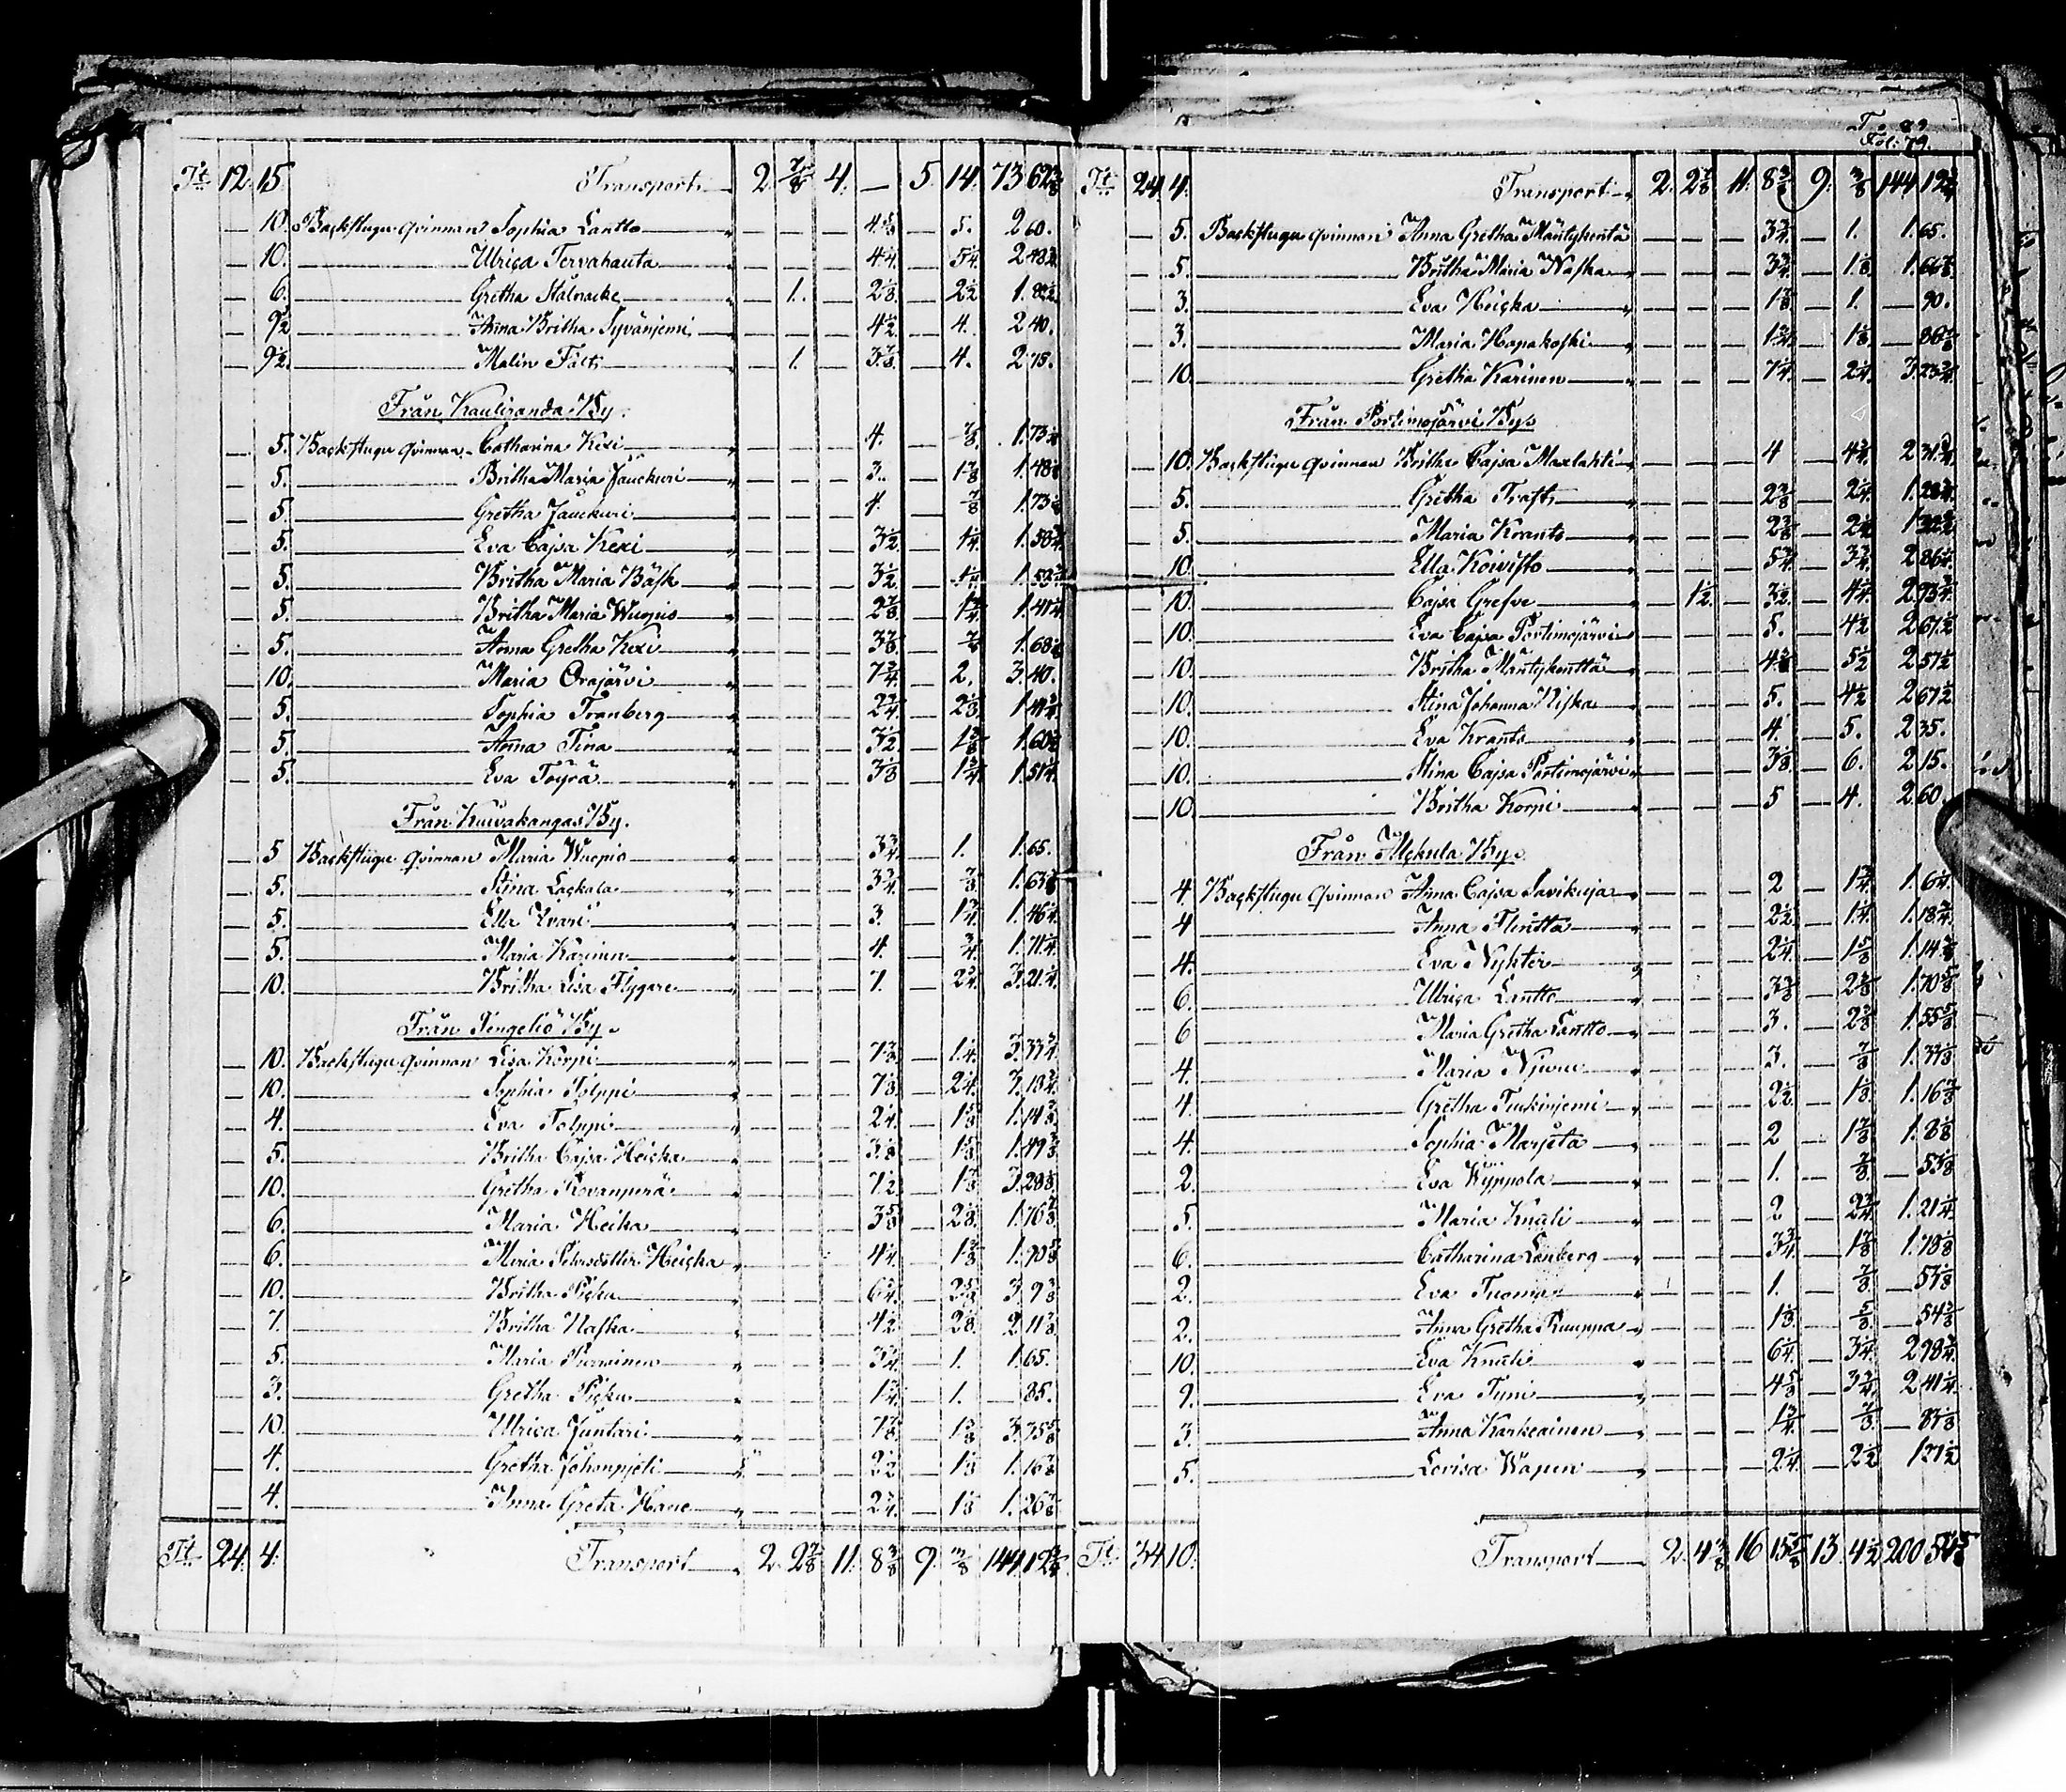 Tt 12. 15. Transport 2. 7/8 4. — 5. 14. 73 62 3/8
— 10. Backstugu qvinnan Sophia Lantto — — — 4 5/8 — 5. 2 60.
— 10. Ulrica Tervahauta — — — 4 1/4 — 5 1/4 2 48 3/4
— 6. Gretha Stålnacke — 1. — 2 1/8 — 2 1/2 1. 82 1/2
— 9 1/2 Anna Britha Syvänjemi — — — 4 1/2 — 4. 2 40.
— 9 1/2 Malin Fält — 1. — 3 7/8 — 4. 2 75.
Från Kauliranda By.
— 5. Backstugu qvinnan Catharina Kexi — — — 4. — 7/8 1. 73
— 5. Britha Maria Jauckuri — — — 3. — 1 3/8 1. 48
— 5. Gretha Jauckuri — — — 4. — 7/8 1. 73
— 5. Eva Cajsa Kexi — — — 3 1/2 — 1 1/4 1. 58
— 5. Britha Maria Bäsk — — — 3 1/2 — 1.
— 5. Britha Maria Wuopio — — — 2 7/8 — 1 3/4 1. 41
— 5. Anna Gretha Kexi — — — 3 7/8 — 7/8 1. 68
— 10. Maria Orajärvi — — — 7 3/4 — 2. 3. 40.
— 5. Sophia Tranberg — — — 2 3/4 — 2 1/8 1
— 5. Anna Tina — — — 3 1/2 — 1 1/8 1. 60
— 5. Eva Töyrä — — — 3 1/8 — 1 3/4 1. 51 1/4
Från Kuivakangas By.
— 5 Backstugu qvinnan Maria Wuopio — — — 3 3/4 — 1. 1. 65.
— 5. Stina Lackala — — — 3 3/4 — 7/8 1. 63
— 5. Ella Ivari — — — 3 — 1 3/4 1. 46 1/4
— 5. Maria Karinen — — — 4. — 3/4 1. 71 1/4
— 10. Britha Lisa Flygare — — — 7. — 2 3/4 3. 21 1/4
Från Pengeliö By.
— 10. Backstugu qvinnan Lisa Korpi — — — 7 3/8 — 1 1/4 3. 33 3/4
— 10. Sophia Tolppi — — — 7 1/8 — 2 1/4 3. 18 3/4
— 4. Eva Tolppi — — — 2 1/4 — 1 5/8 1. 14 3/8
— 5. Britha Cajsa Heicka — — — 3 1/8 — 1 5/8 1. 49 3/8
— 10. Gretha Rovanperä — — — 7 1/2 — 1 3/8 3. 28
— 6. Maria Heika — — — 3 5/8 — 2 1/8 1. 76 7/8
— 6. Maria Pehrsdotter Heicka — — — 4 1/4 — 1 3/8 1. 90 5/8
— 10. Britha — — — 6 3/4 — 3. 9 3/8
— 7. Britha Naska — — — 4 1/2 — 2 1/8 2 11 7/8
— 5. Maria — — — 3 3/4 — 1. 1. 65.
— 3. Gretha — — — 1 3/4 — 1. — 85.
— 10. Ulrica Juntari — — — 7 7/8 — 1 3/8 3. 35 5/8
— 4. Gretha Johanpieti — — — 2 1/2 — 1 1/8 1. 16 7/8
— 4. Anna Greta Hane — — — 2 3/4 — 1 1/8 1. 26 7/8
Tt 24. 4. Transport 2. 2 7/8 11. 8 3/8 9. 3/8 144. 12 3/4
Fol. 79.
Tt. 24. 4. Transport 2. 2 7/8 11. 8 3/8 9. 3/8 144 12 3/4
— 5. Backstugu qvinnan Anna Gretha Mäntykentä — — — 3 3/4 — 1. 1. 65.
— 5. Britha Maria Naska — — — 3 3/4 — 1 1/8 1. 66 7/8
— 3. Eva Heicka — — — 1 7/8 — 1. — 90.
— 3. Maria Hapakoski — — — 1 3/4 — 1 1/8 — 86 7/8
— 10. Gretha Karinen — — — 7 1/4 — 2 1/4 3. 23 3/4
Från Portimojärvi By.
— 10. Backstugu qvinnan Britha Cajsa Maxlahti — — — 4 — 4 3/4 2
— 5. Gretha Trast — — — 2 3/8 — 2 1/4 1.
— 5. Maria Krants — — — 2 3/8 — 1
— 10. Ella Koivisto — — — 5 3/4 — 3 3/4 2 86 1/4
— 10. Cajsa Grefve — 1 1/2 — 3 1/2 — 4 1/4 2 93 3/4
— 10. Eva Cajsa Portimojärvi — — — 5. — 4 1/2 2 67 1/2
— 10. Britha Mäntykenttä — — — 5 1/2 2 57 1/2
— 10. Stina Johanna Niska — — — 5. — 4 1/2 2 67 1/2
— 10. Eva Krants — — — 4. — 5. 2 35.
— 10. Stina Cajsa Portimojärvi — — — 3 1/8 — 6. 2 15.
— 10. Britha Korpi — — — 5 — 4. 2 60.
Från Alckula By.
— 4 Backstugu qvinnan Anna Cajsa Savikuja — — — 2 — 1 3/4 1. 6 1/4
— 4 Anna — — — 2 1/2 — 1 1/4 1. 18 3/4
— 4. Eva Nyhter — — — 2 1/4 — 1 5/8 1. 14 3/8
— 6. Ulrica Lantto — — — 3 3/8 — 2 3/8 1. 70 5/8
— 6 Maria Gretha Lantto — — — 3. — 2 3/8 1. 55 5/8
— 4. Maria — — — 3. — 7/8 1. 33 1/8
— 4. Gretha Tuckinjemi — — — 2 1/2 — 1 1/8 1. 16 7/8
— 4. Sophia Marjeta — — — 2 — 1 7/8 1. 8 1/8
— 2. Eva Wyppola — — — 1. — 7/8 — 53 1/8
— 5. Maria Knuti — — — 2 — 2 3/4 1. 21 1/4
— 6. Catharina Lenberg — — — 3 3/4 — 1 7/8 1. 78 1/8
— 2. Eva — — — 1. — 7/8 — 53 1/8
— 2. Anna Gretha Ruuppa — — — 1 1/8 — 5/8 — 54 3/8
— 10. Eva Knuti — — — 6 1/4 — 3 1/4 2 98 3/4
— 9. Eva Tuni — — — 4 5/8 — 3 3/4 2 41 1/4
— 3. Anna Karkeainen — — — 1 3/4 — 7/8 — 83 1/8
— 5. Lovisa Wapen — — — 2 1/4 — 2 1/2 1 27 1/2
Tt. 34 10. Transport 2. 4 3/8 16 15 5/8 13 4 1/2 200